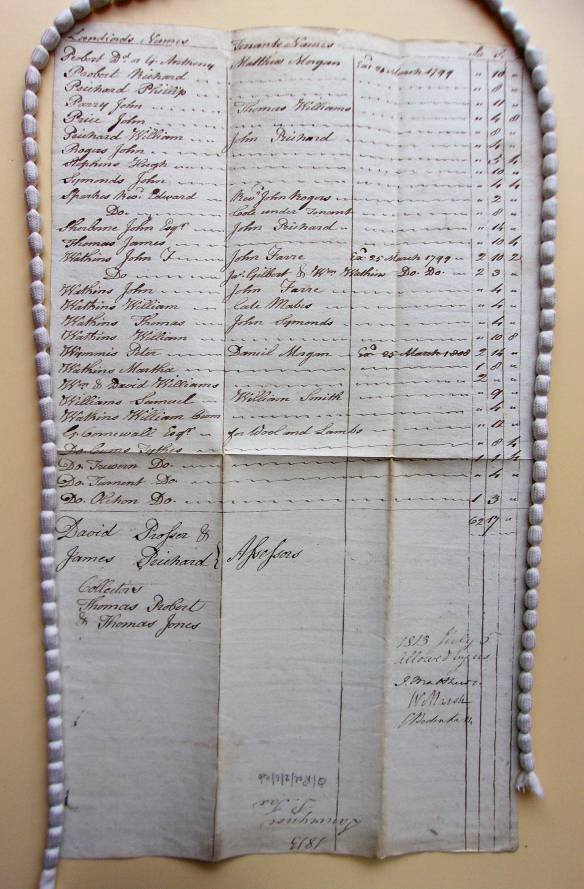 Landlords Names Tenants Names £ S
Probert Dd or G Anthony Matthew Morgan Exd 25 March 1799 " 10 "
Probert Richard " 8 "
Prichard Phillip " 11 "
Parry John Thomas Williams " 4 8
Price John " 8 "
Prichard William John Prichard
Rogers John " 3 4
Hopkins Hugh " 10 "
Symonds John " 4 4
Sparkes Revd Edward Revd John Rogers " 2 "
Do Cole under Tenant " 8 "
Sherborne John Esqr John Prichard " 14 "
Thomas James " 10 4
Watkins John T John Farre Exd 25 March 1799 2 10 2
Do Jas Gilbert & Wm Watkin Do Do 2 3 "
Watkins John John Farre " 4 "
Watkins William Cale Mabes " 4 "
Watkins Thomas John Symonds " 4 "
Watkins William " 10 8
Wymmis Peter Daniel Morgan Exd 25 March 1808 2 14 "
Watkins Martha 1 8 "
Wm & David Williams 2 " "
Williams Samuel William Smith " 9 "
Watkins William " 4 "
Cornewall Esqr for Wool and Lambs " 12 "
Do Tythes " 8 4
Do Do 4
Do Turment Do " 4 "
Do Olchon Do 1 3 "
62 17 "
David Prosser &
James Prichard } Assessors
Collectors
Thomas Probert
& Thomas Jones
1813 July 5
Allowed by us
W Marsh
1813